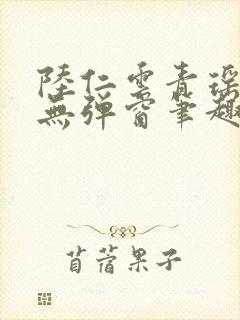 陸仁雲青瑤
無彈窗筆趣
苜蓿果子